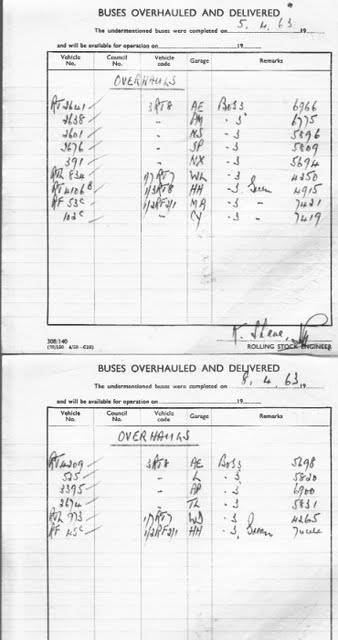 BUSES OVERHAULED AND DELIVERED
The undermentioned buses were completed on 5.4.63 19
and will be available for operation on 19
Vehicle No. Council No. Vehicle code Garage Remarks
OVERHAULS
RT 2641 3RT8 AE Bo S3 6966
2638 " -3 6775
2601 " NS -3 5896
2676 " SP -3 5809
391 " NX -3 5694
RTL 834 1/7RT7 WL -3 4250
RT 4106 B 1/3RT8 HH -3 Green 4915
RF 53c 1/2RF2/1 MA -3 " 7421
102c " CY -3 7419
ROLLING STOCK ENGINEER
308/140
BUSES OVERHAULED AND DELIVERED
The undermentioned buses were completed on 8.4.63 19
and will be available for operation on 19
Vehicle No. Council No. Vehicle code Garage Remarks
OVERHAULS
RT 4209 3RT8 AE Bo S3 5698
525 " L -3 5820
3395 " AP -3 6900
2674 " TL -3 5831
RTL 973 1/7RT7 WD -3 4265
RF 45c 1/2RF2/1 HH -3 Green